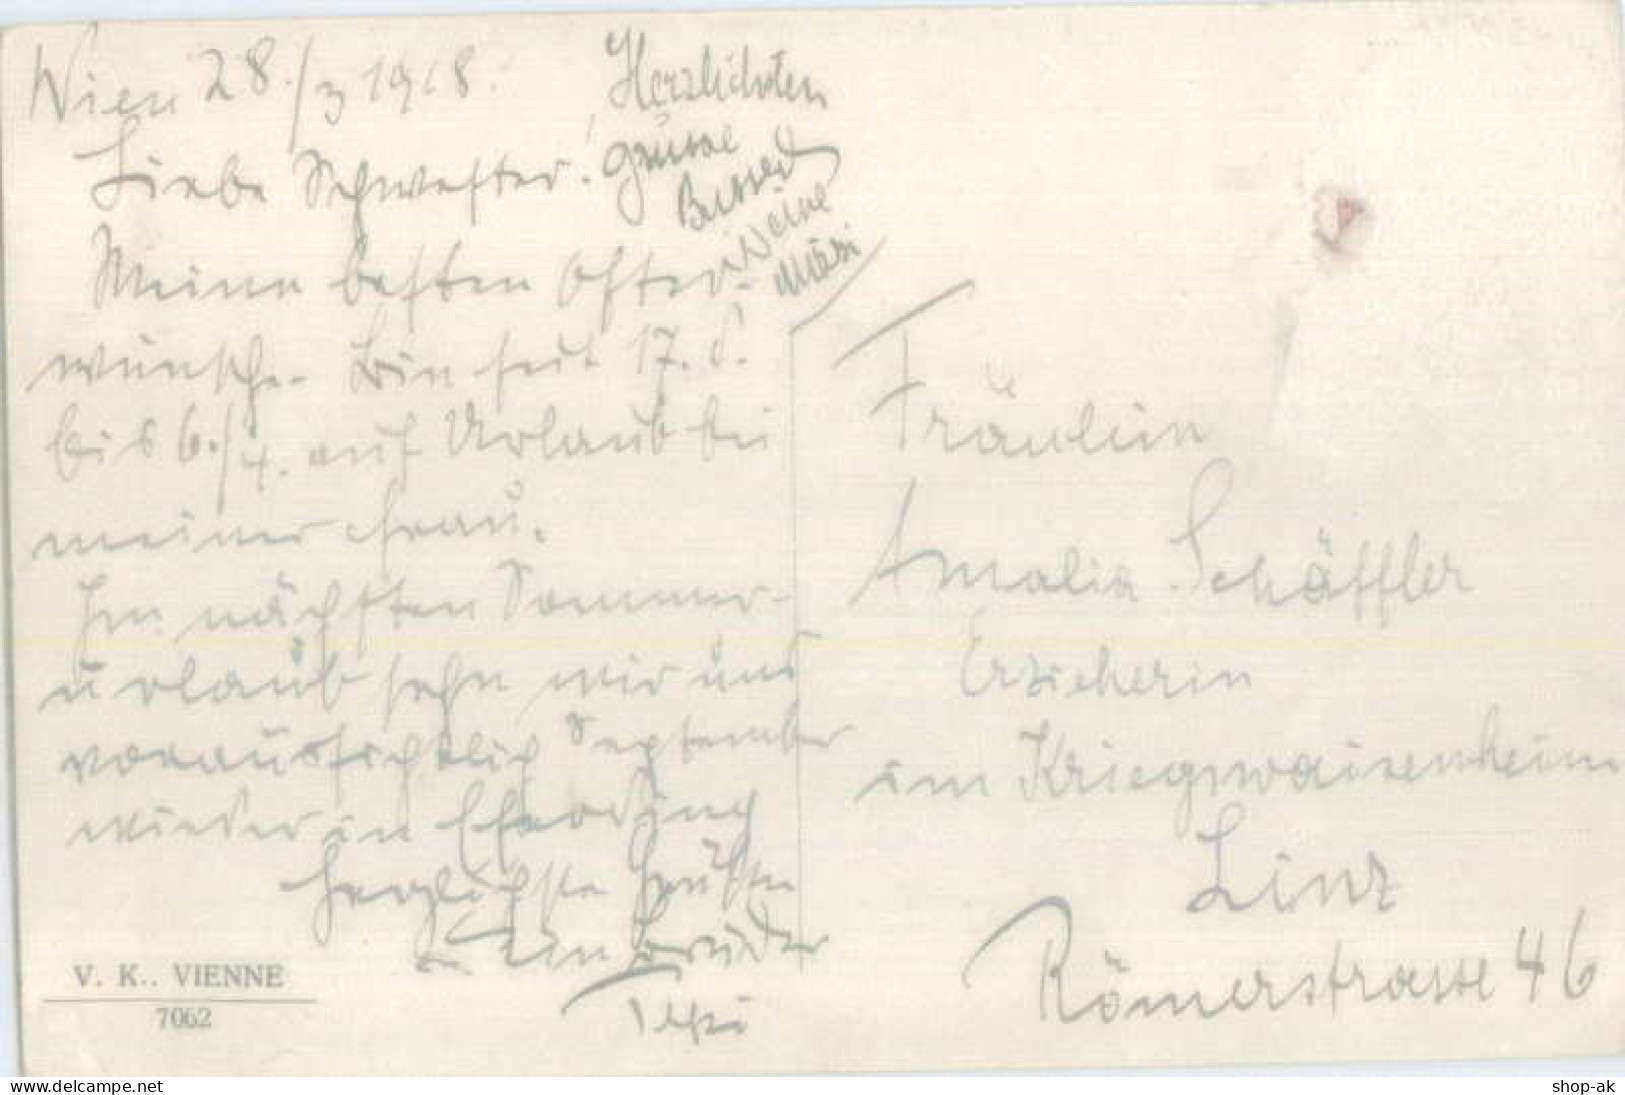 Wien 28./3 1918.
Liebe Schwester!
Meine besten Oster-
wünsche. Bin seit 17. d.
bis 6./4. auf Urlaub bei
meiner Frau.
Im nächsten Sommer-
urlaub sehn wir uns
voraussichtlich September
wieder in Eferding
Herzlichste Grüße
Dein Bruder
V. K.. VIENNE
7062
Herzlichsten
Grüsse
Deine
Fräulein
Amalia Schäffler
Erzieherin
im Kriegswaisenheim
Linz
Römerstrasse 46
www.delcampe.net
shop-ak